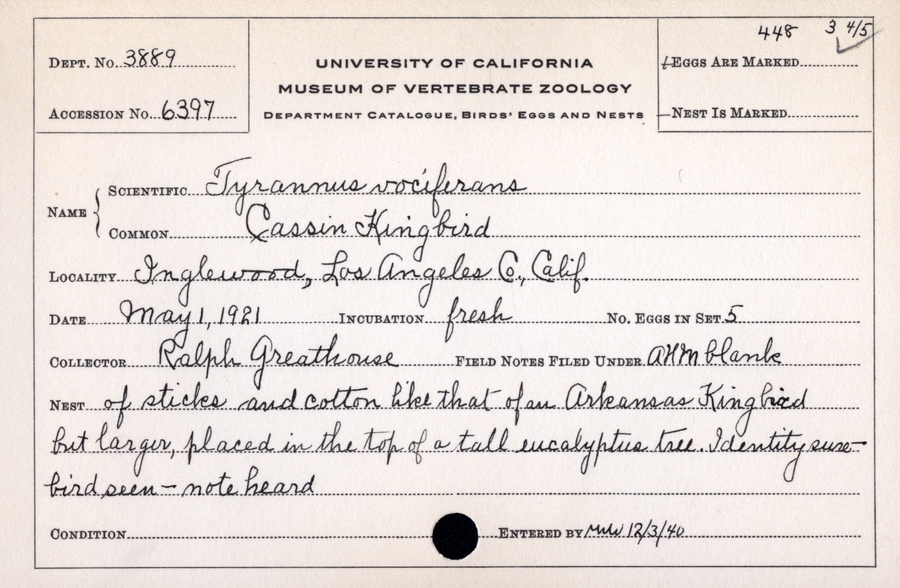 448 3 4/5
Dept. No. 3889
UNIVERSITY OF CALIFORNIA
Eggs Are Marked
MUSEUM OF VERTEBRATE ZOOLOGY
Accession No. 6397
Department Catalogue, Birds' Eggs and Nests
Nest Is Marked
Name { Scientific Tyrannus vociferans
Common Cassin Kingbird
Locality Inglewood, Los Angeles Co., Calif.
Date May 1, 1921 Incubation fresh No. Eggs in Set 5
Collector Ralph Greathouse Field Notes Filed Under AHM blank
Nest of sticks and cotton like that of an Arkansas Kingbird
but larger, placed in the top of a tall eucalyptus tree. Identity sure-
bird seen - note heard
Condition Entered by 12/3/40